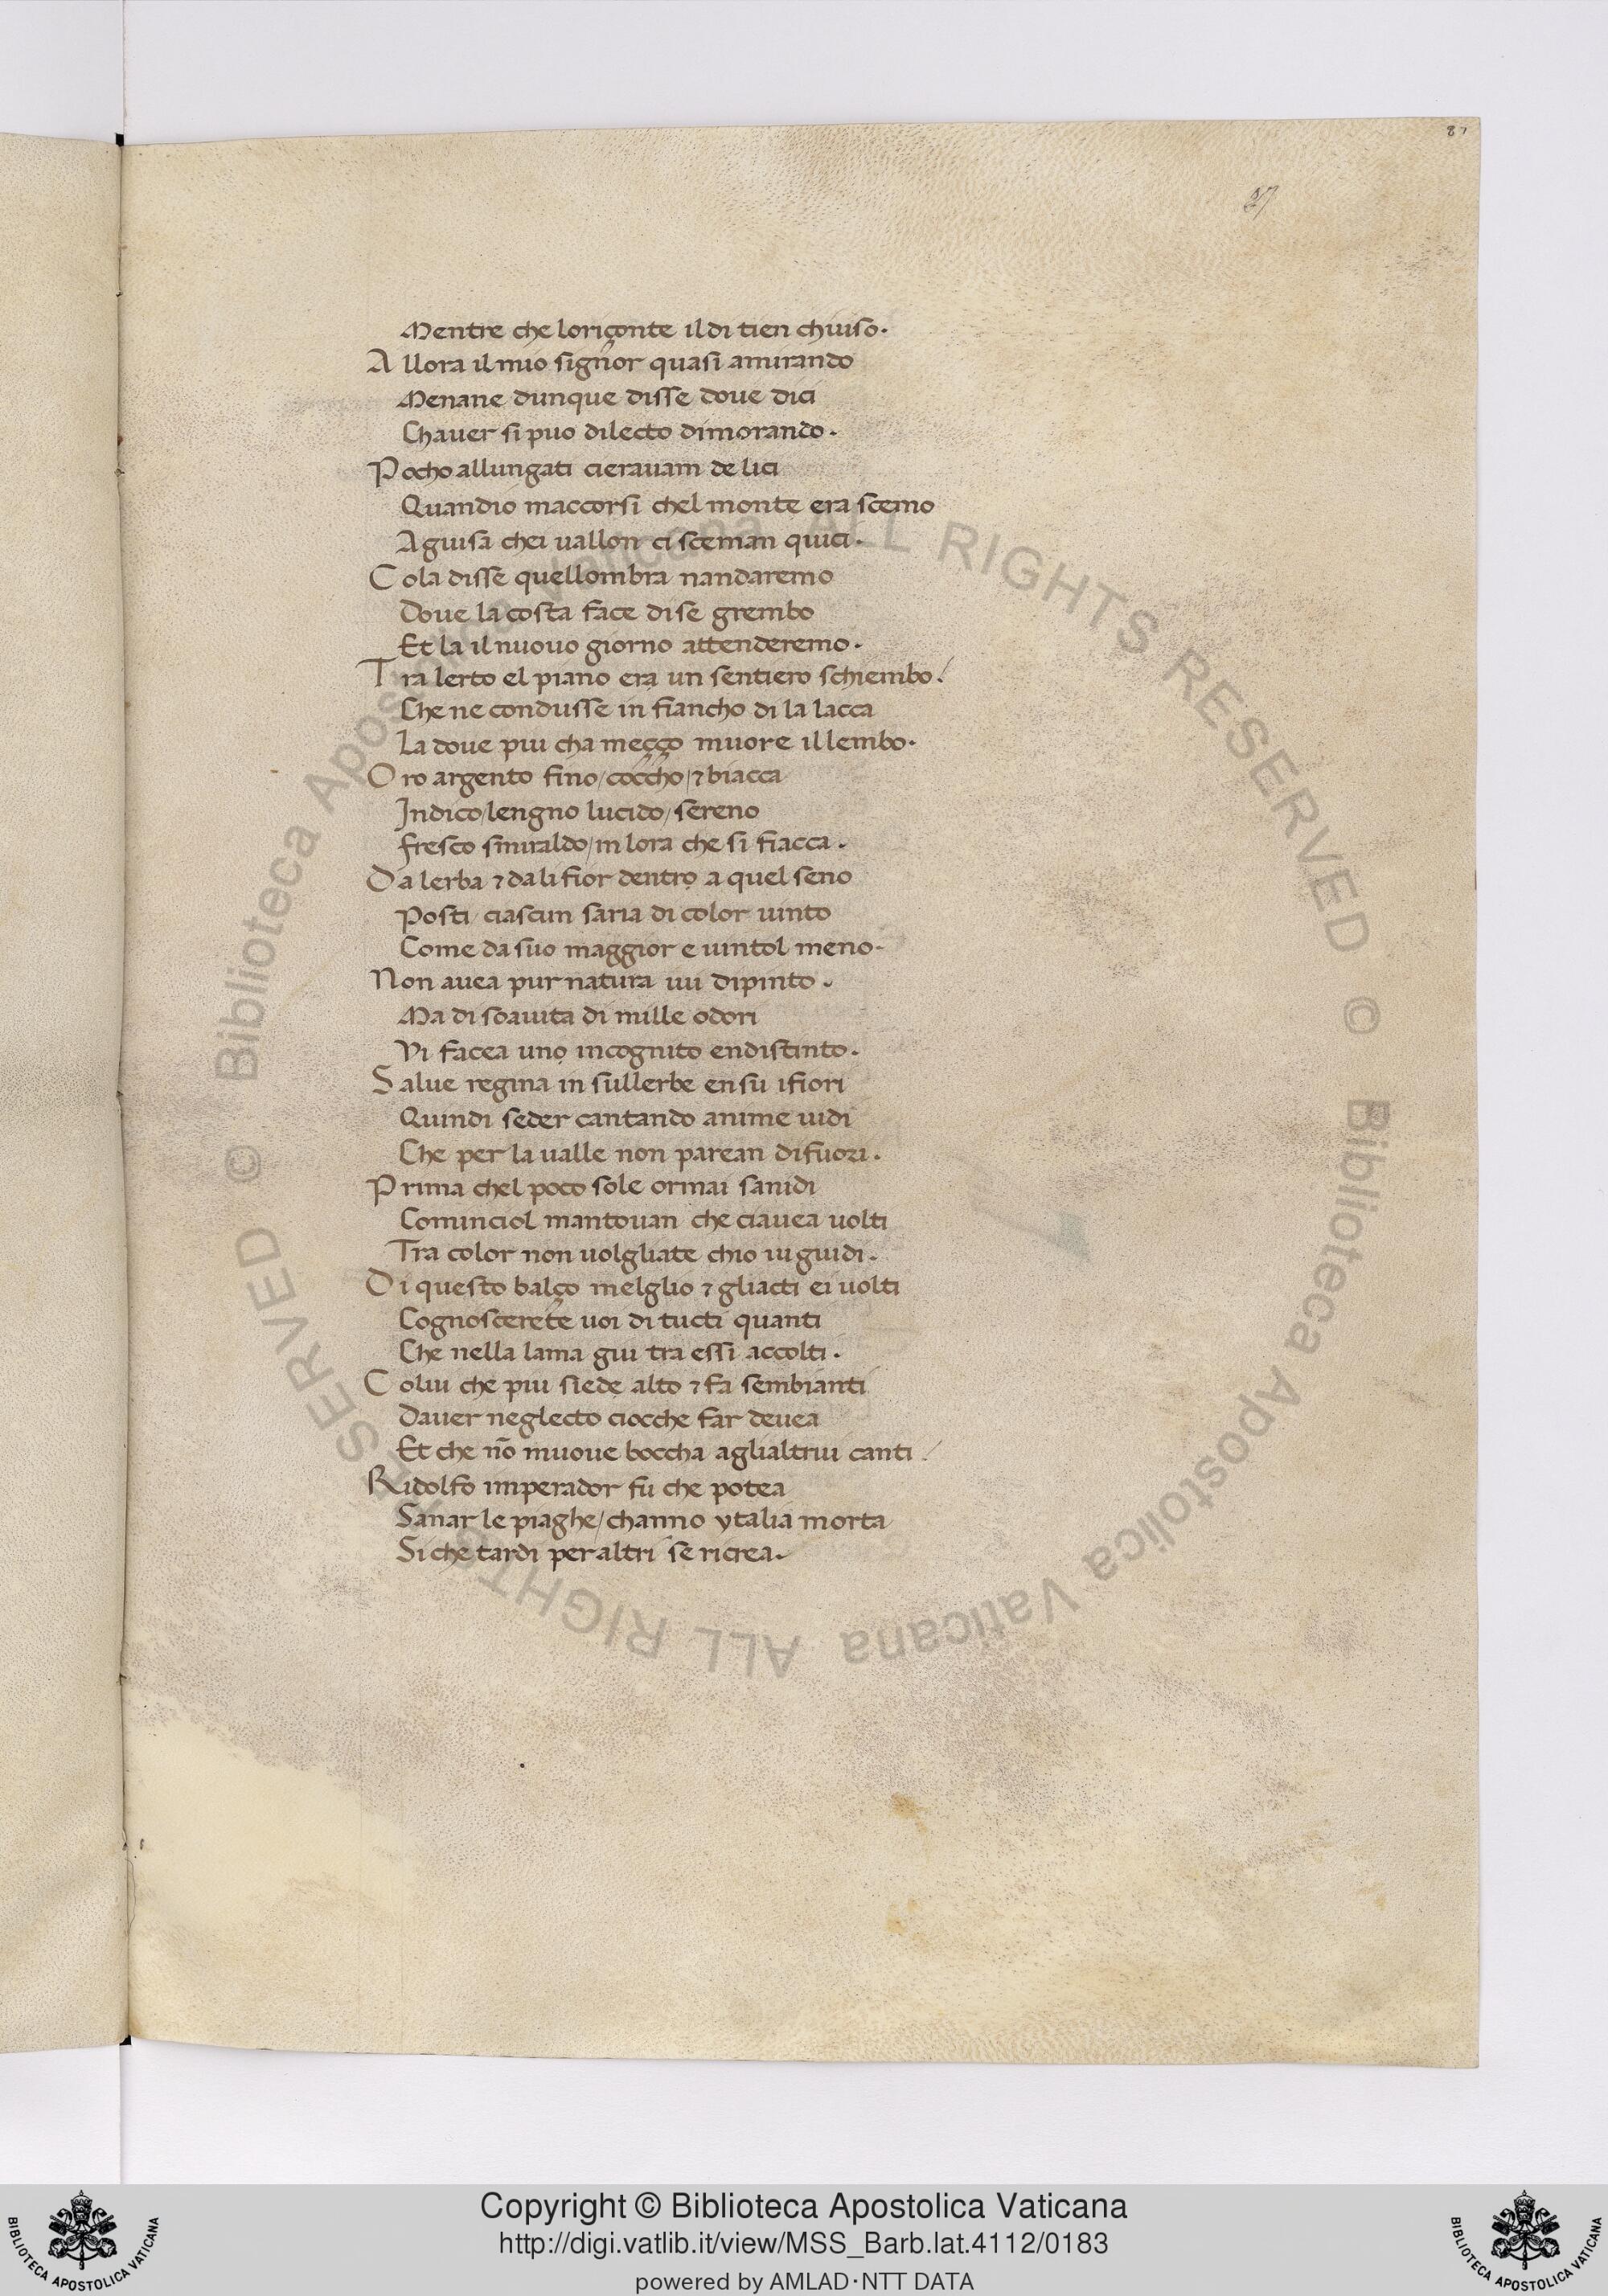 87
87
Mentre che loriçonte il di tien chiuso.
Allora il mio signor quasi amirando
Menane dunque disse doue dici
Chauer si puo dilecto dimorando.
Pocho allungati cierauam de lici
Quandio maccorsi chel monte era scemo
A guisa chei uallon ci sceman quici.
Cola disse quellombra nandaremo
Doue la costa face di se grembo
Et la il nuouo giorno attenderemo.
Tra lerto el piano era un sentiero schiembo/
Che ne condusse in fiancho di la lacca
La doue piu cha meçço muore il lembo.
Oro argento fino/coccho/⁊ biacca
Indico/lengno lucido/sereno
fresco smiraldo/in lora che si fiacca.
Da lerba ⁊ da li fior dentro a quel seno
Posti/ciascun saria di color uinto
Come da suo maggior e uintol meno.
Non auea pur natura iui dipinto.
Ma di soauita di mille odori
Vi facea uno incognito endistinto.
Salue regina in sullerbe ensu ifiori
Quindi seder cantando anime uidi
Che per la ualle non parean di fuori.
Prima chel poco sole ormai sanidi
Cominciol mantouan che ciauea uolti
Tra color non uolgliate chio ui guidi.
Di questo balço melglio ⁊ gliacti ei uolti
Cognoscerete uoi di tucti quanti
Che nella lama giu tra essi accolti.
Colui che piu siede alto ⁊ fa sembianti
Dauer neglecto ciocche far deuea
Et che nō muoue boccha aglialtrui canti/
Ridolfo imperador fu che potea
Sanar le piaghe/channo ytalia morta
Si che tardi per altri se ricrea.
© Biblioteca Apostolica Vaticana ALL RIGHTS RESERVED
© Biblioteca Apostolica Vaticana ALL RIGHTS RESERVED
BIBLIOTECA APOSTOLICA VATICANA
Copyright © Biblioteca Apostolica Vaticana
http://digi.vatlib.it/view/MSS_Barb.lat.4112/0183
powered by AMLAD·NTT DATA
BIBLIOTECA APOSTOLICA VATICANA